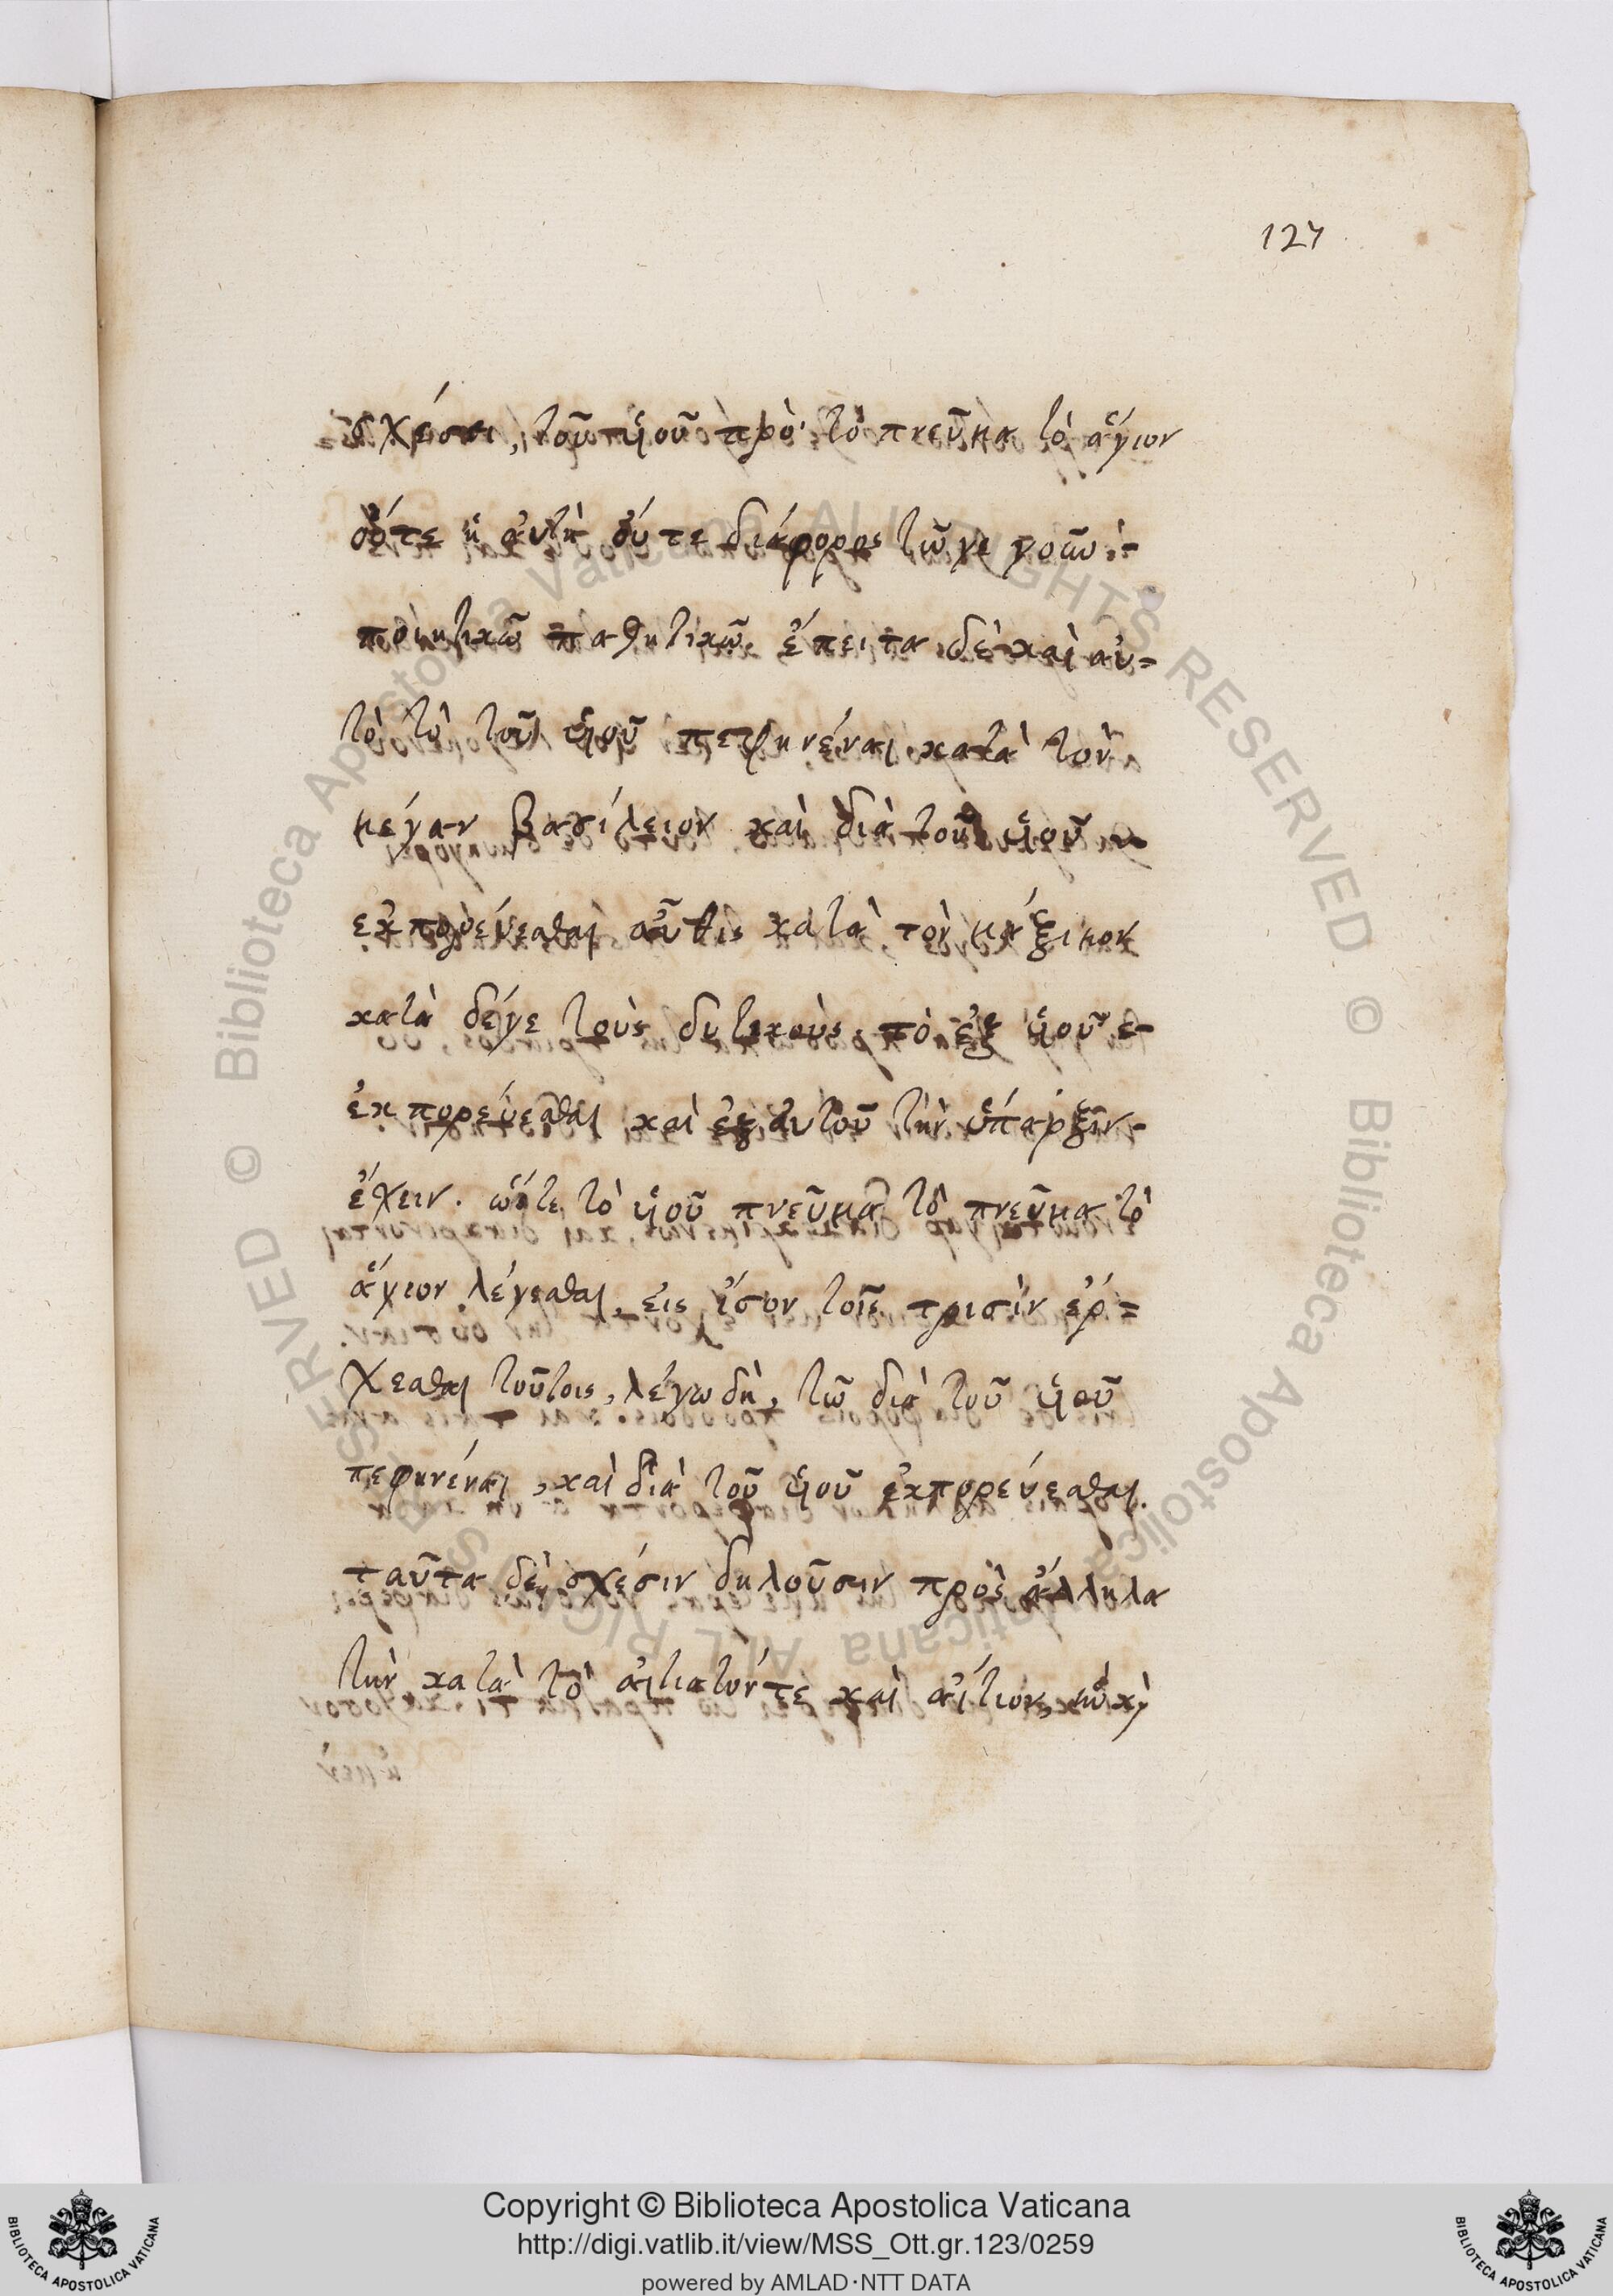 127
σχέσει, τοῦ ὑιοῦ πρὸ τὸ πνεῦμα τὸ ἅγιον
οὔτε ἡ αὐτὴ οὔτε διάφορος τῶ γε
ποιητικῶ παθητικῶ. ἔπειτα δὲ καὶ αὐ=
τὸ τὸ τοῦ ὑιοῦ πεφηνέναι κατὰ τὸν
μέγαν βασίλειον καὶ διὰ τοῦ ὑιοῦ
ἐκπορεύεσθαι αὖθις κατὰ τὸν μάξιμον
κατὰ δέγε τοὺς δυτικοὺς τὸ ἐξ ὑιοῦ ε-
ἐκπορεύεσθαι καὶ ἐξ αὐτοῦ τὴν ὕπαρξιν-
ἔχειν. ὥστε τὸ ὑιοῦ πνεῦμα τὸ πνεῦμα τὸ
ἅγιον λέγεσθαι, εἰς ἴσον τοῖς τρισὶν ἔρ=
χεσθαι τούτοις, λέγω δὴ, τῶ διὰ τοῦ ὑιοῦ
πεφηνέναι, καὶ διὰ τοῦ ὑιοῦ ἐκπορεύεσθαι.
ταῦτα δὲ σχέσιν δηλοῦσιν πρὸς ἄλληλα
τὴν κατὰ τὸ αἰτιατόν τε καὶ αἴτιον,
Copyright © Biblioteca Apostolica Vaticana
http://digi.vatlib.it/view/MSS_Ott.gr.123/0259
powered by AMLAD·NTT DATA
BIBLIOTECA APOSTOLICA VATICANA
BIBLIOTECA APOSTOLICA VATICANA